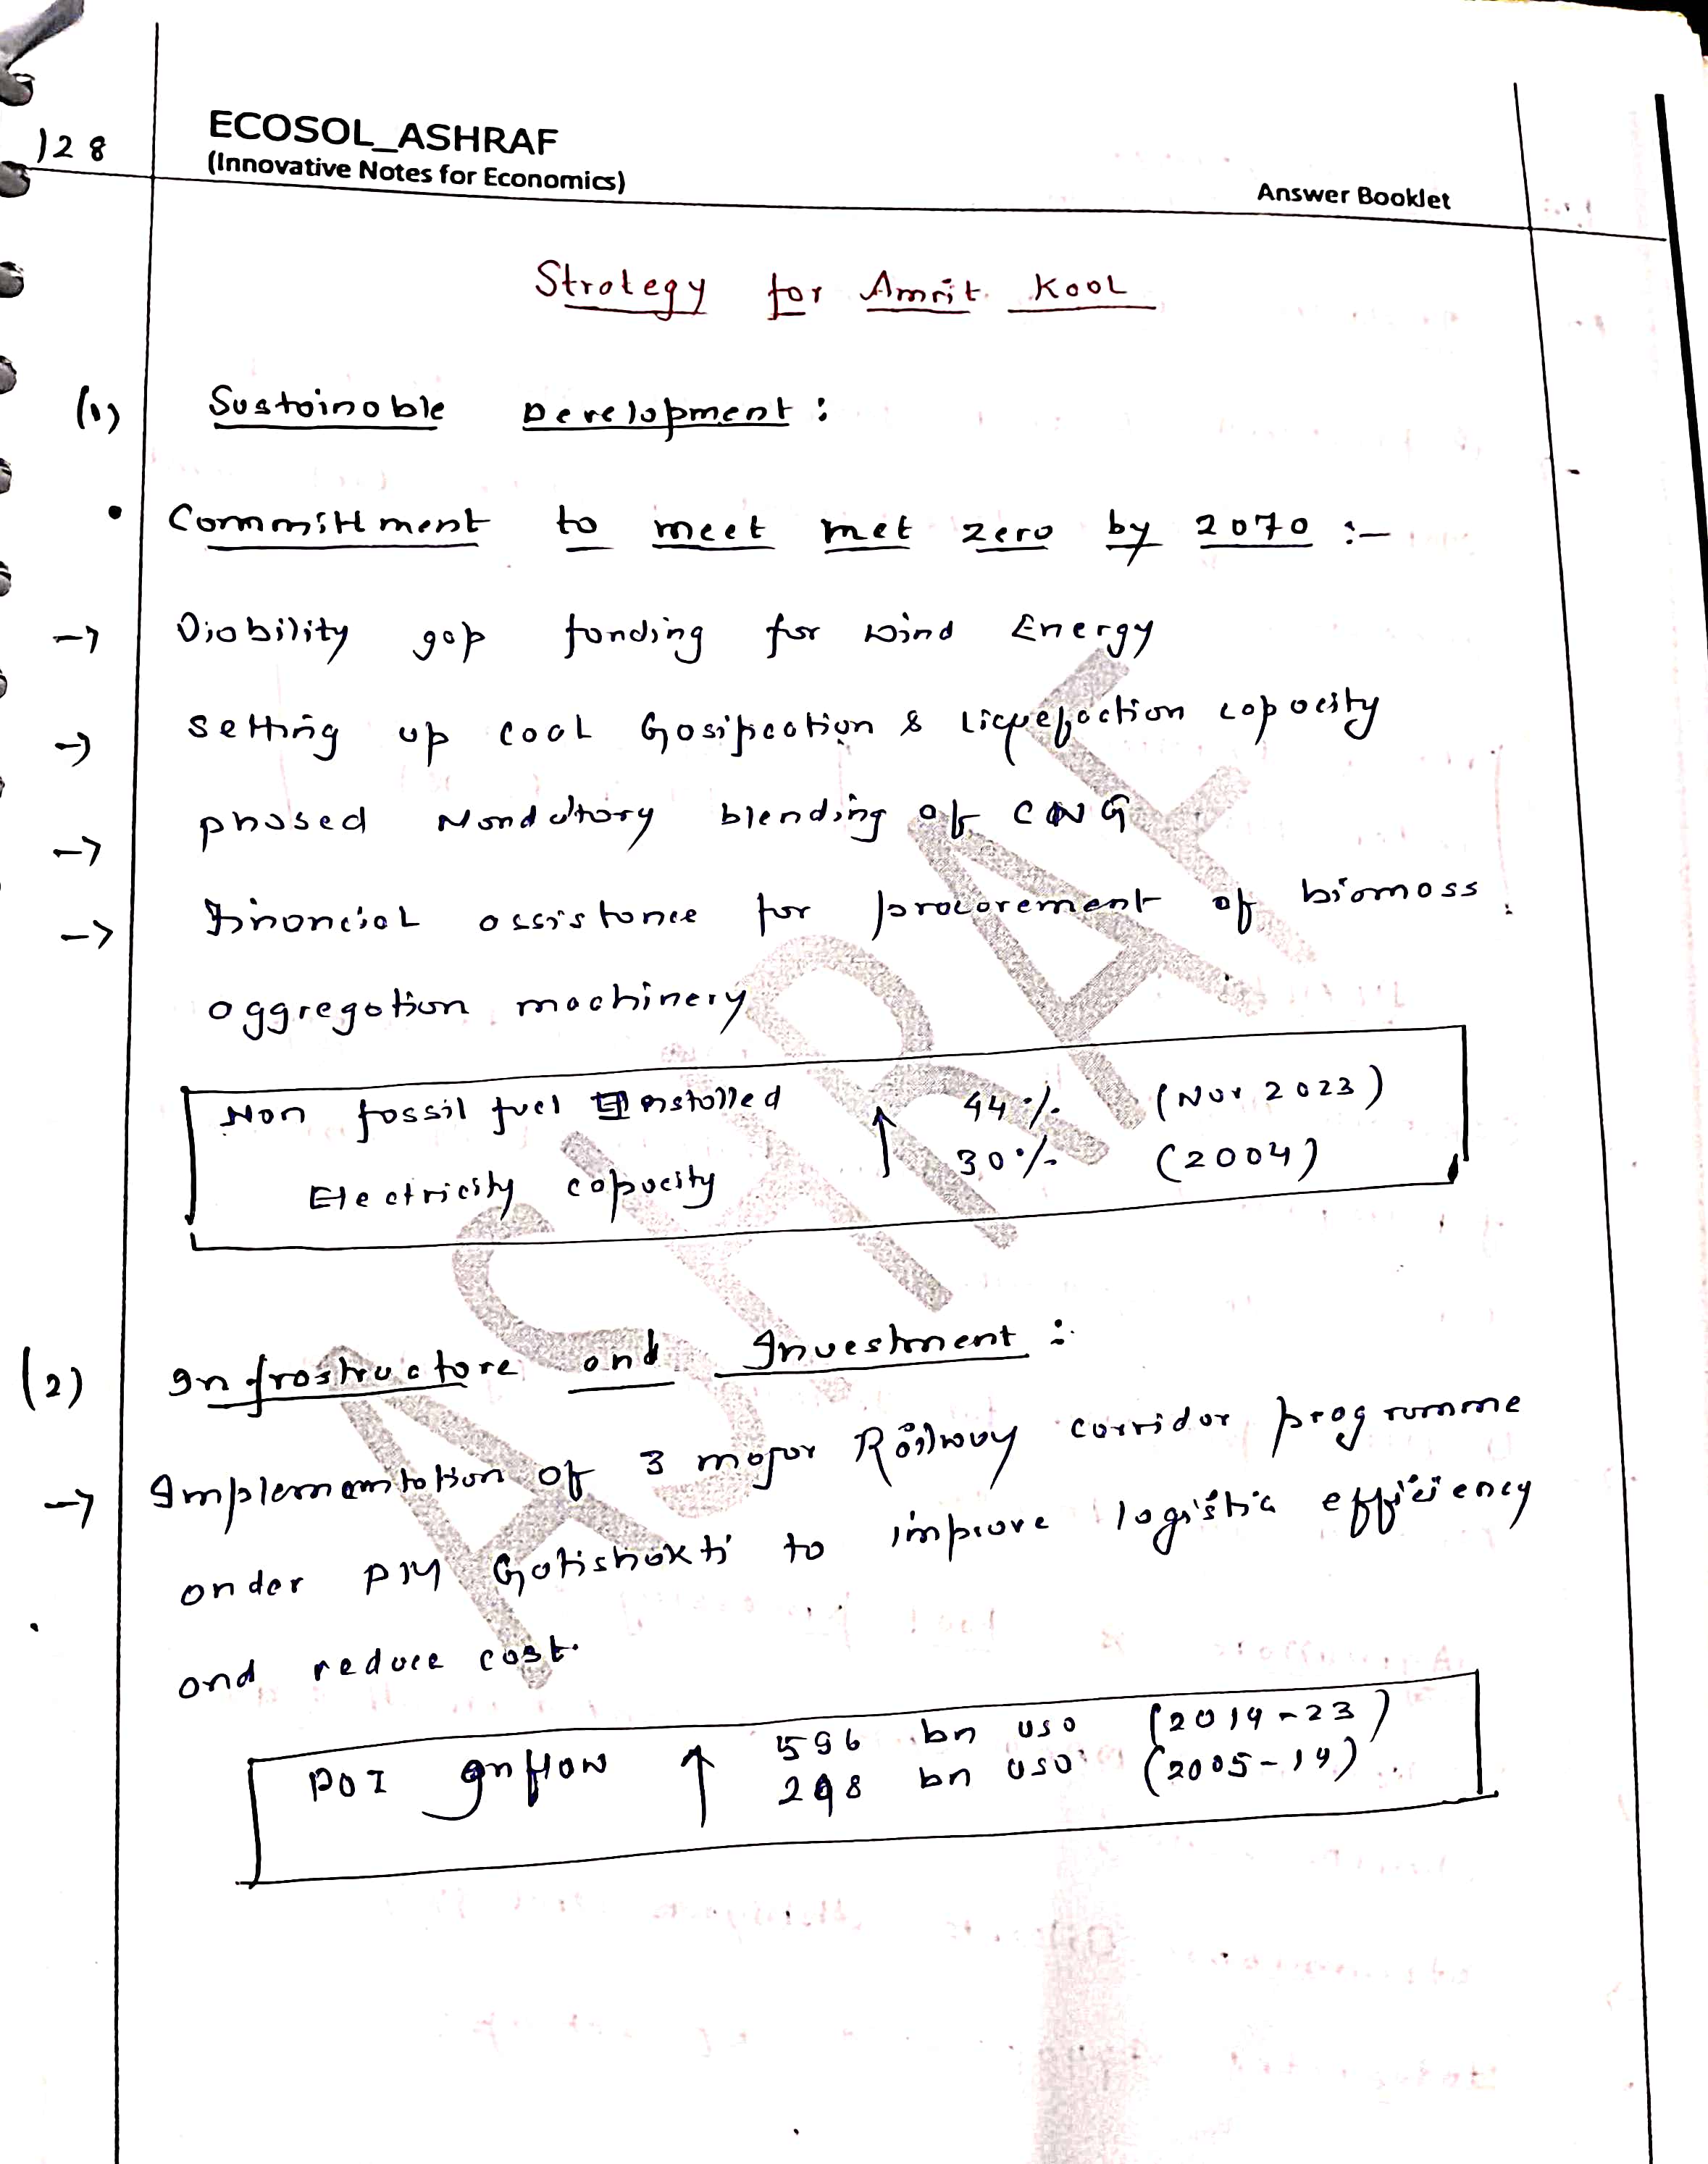 128
ECOSOL_ASHRAF
(Innovative Notes for Economics)
Answer Booklet
Strategy for Amrit Kaal
(1) Sustainable Development :
• Committment to meet met zero by 2070 :-
→ Viability gap funding for wind Energy
→ Setting up coal Gasification & Liquefaction capacity
→ phased Mandatory blending of CNG
→ Financial assistance for procurement of biomass
aggregation machinery
Non fossil fuel Installed ↑ 44% (Nov 2023)
Electricity capacity 30% (2004)
(2) Infrastructure and Investment :
→ Implementation of 3 major Railway corridor programme
under PM Gatishakti to improve logistic efficiency
and reduce cost.
FDI Inflow ↑ 596 bn USD (2014-23)
298 bn USD (2005-14)
ASHRAF